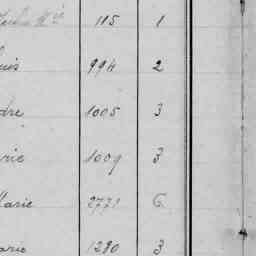 115 1
uis 994 2
dre 1005 3
arie 1009 3
Marie 2771 6
arie 1280 3